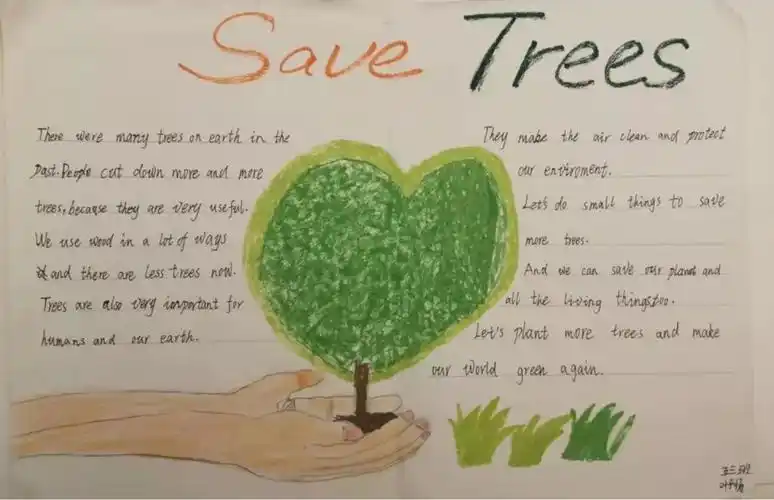 Save Trees
There were many trees on earth in the
past. People cut down more and more
trees, because they are very useful.
We use wood in a lot of ways
and there are less trees now.
Trees are also very important for
humans and our earth.
They make the air clean and protect
our enviroment.
Let's do small things to save
more trees.
And we can save our planet and
all the living things too.
Let's plant more trees and make
our world green again.